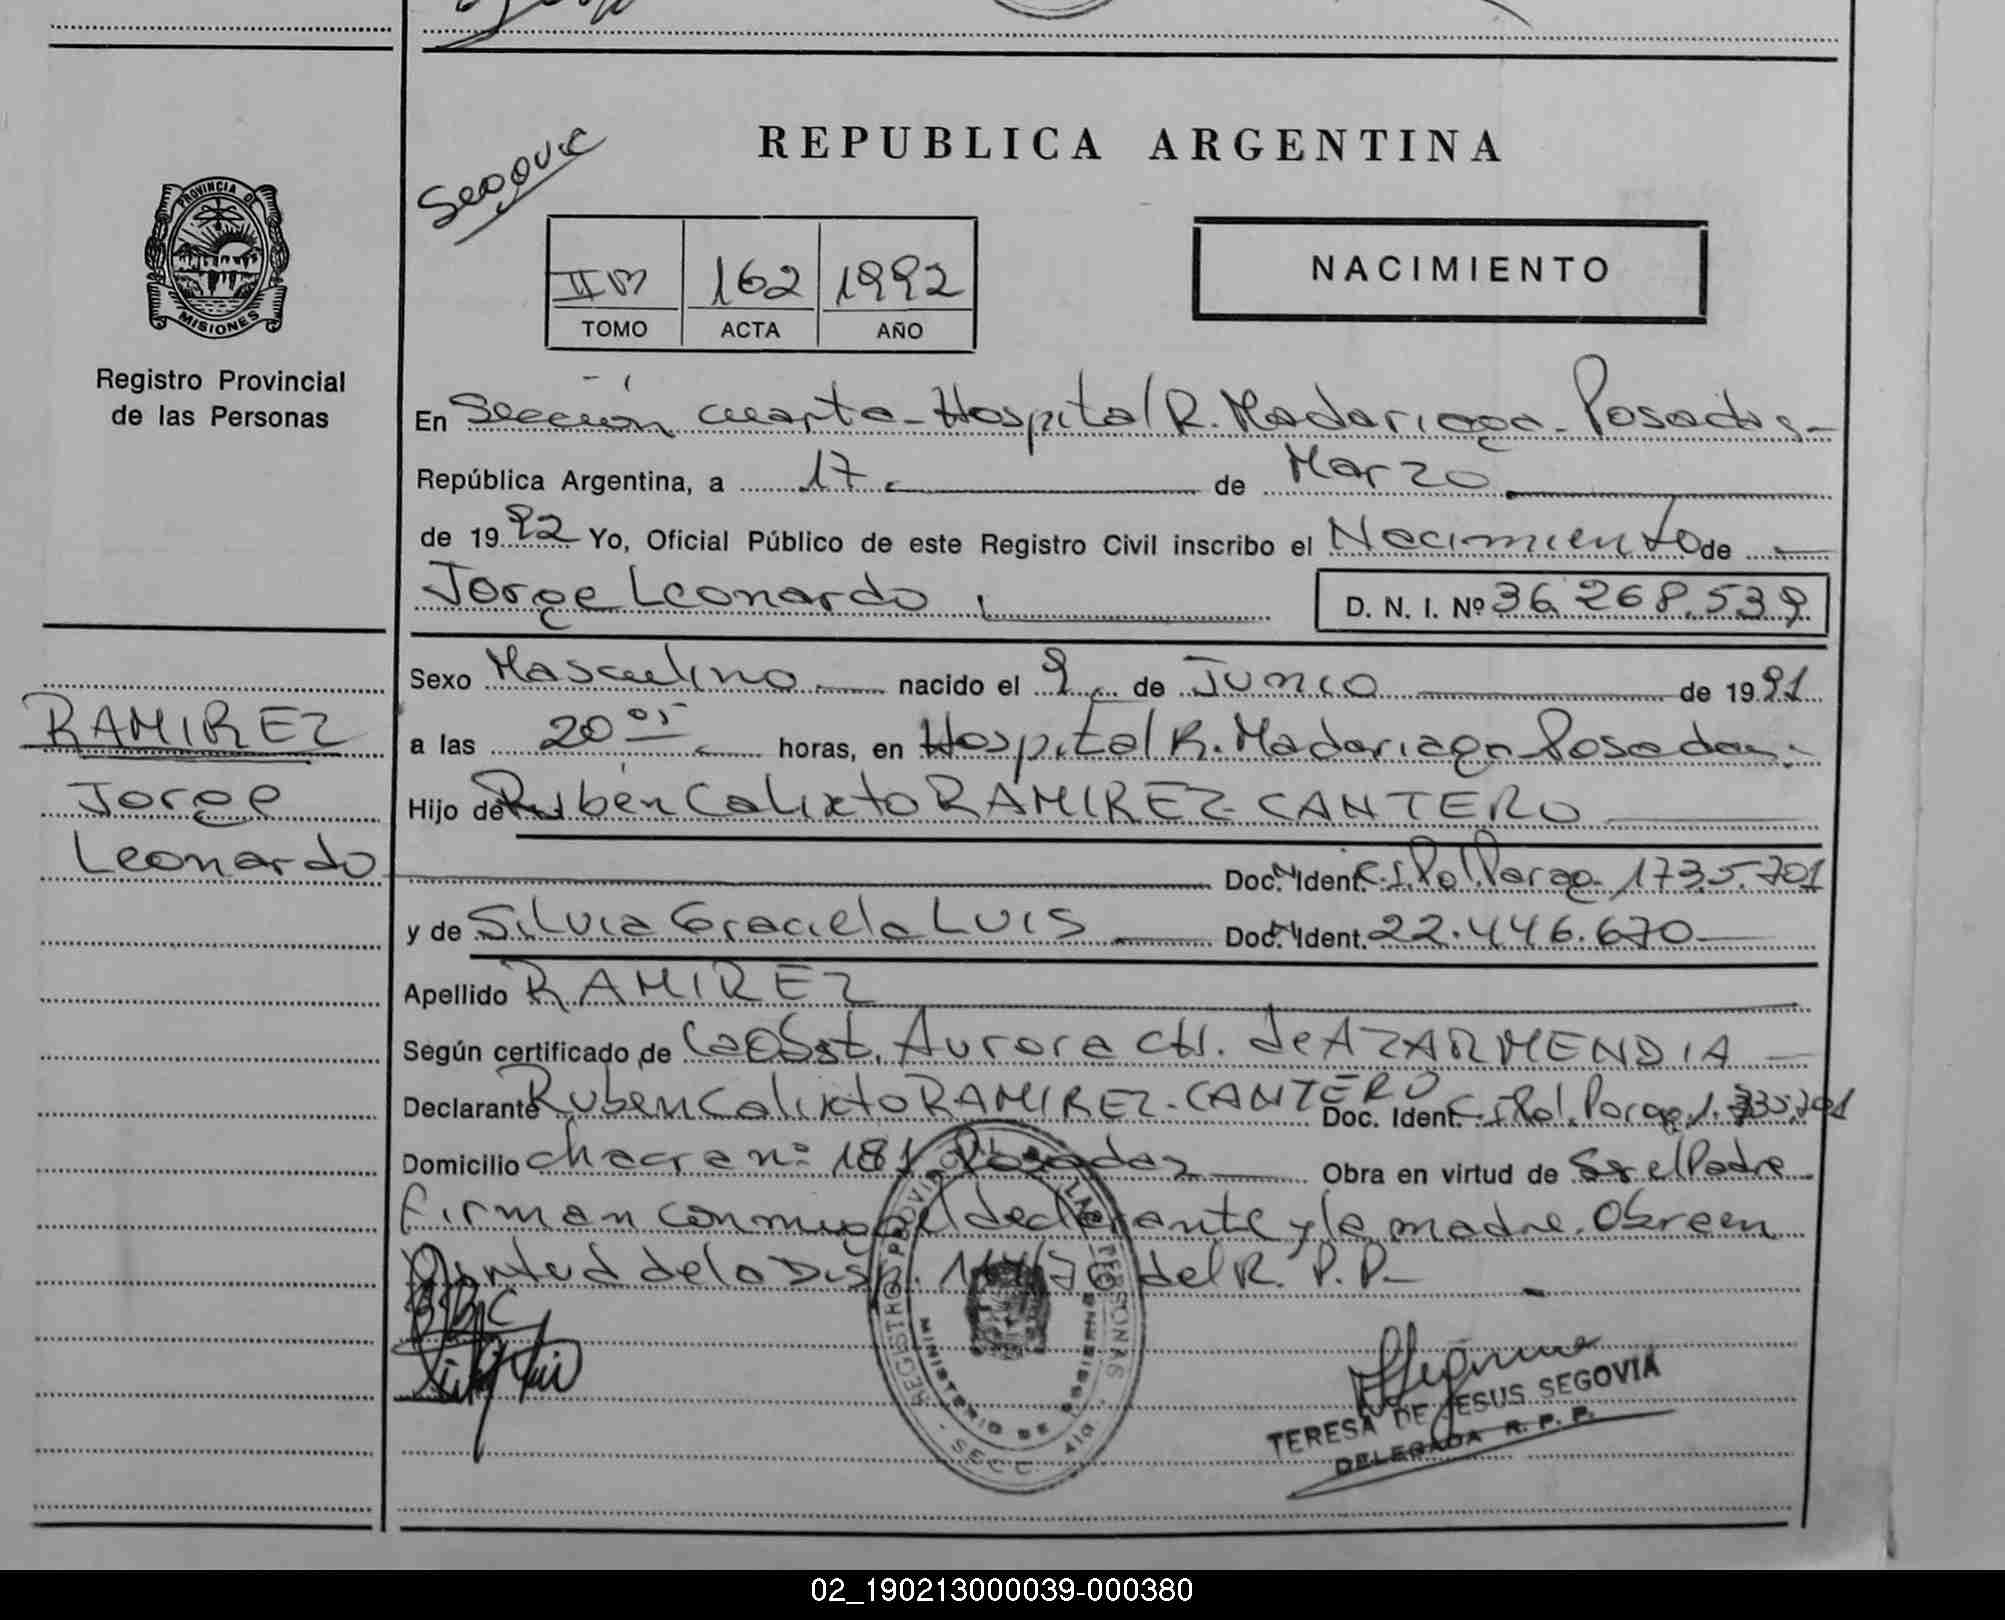 REPUBLICA ARGENTINA
Segovia
PROVINCIA DE
MISIONES
Registro Provincial
de las Personas
II M 162 1992
TOMO ACTA AÑO
NACIMIENTO
En Sección cuarta - Hospital R. Madariaga - Posadas -
República Argentina, a 17 de Marzo
de 1992 Yo, Oficial Público de este Registro Civil inscribo el Nacimiento de
Jorge Leonardo D. N. I. Nº 36.268.539
Sexo Masculino nacido el 9 de Junio de 1991
RAMIREZ
a las 20 05 horas, en Hospital R. Madariaga Posadas.
Jorge
Hijo de Rubén Calixto RAMIREZ-CANTERO
Leonardo
Doc. Ident. C.I. Pol. Parag. 1735.701
y de Silvia Graciela LUIS Doc. Ident. 22.446.670
Apellido RAMIREZ
Según certificado de la Obst. Aurora CH. de AZARMENDIA
Declarante Ruben Calixto RAMIREZ-CANTERO Doc. Ident. C.I. Pol. Parag. 1.735.701
Domicilio chacra nº 181 Posadas Obra en virtud de Ser el Padre
firman conmigo el declarante y la madre. Obra en
Virtud de la Disp. del R. P. P.
REGISTRO PROVINCIAL DE LAS PERSONAS
MINISTERIO DE GOBIERNO
SECC. 4ta
TERESA DE JESUS SEGOVIA
DELEGADA R. P. P.
02_190213000039-000380